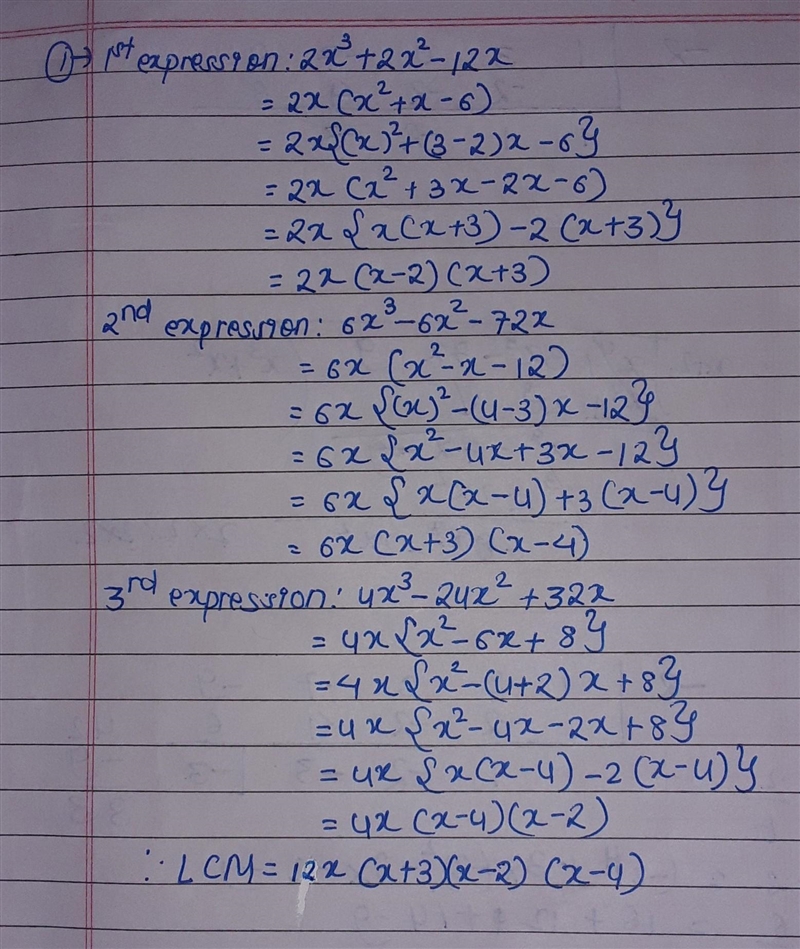 ①→ 1st expression: 2x³+2x²-12x
= 2x(x²+x-6)
= 2x{(x)²+(3-2)x-6}
= 2x(x²+3x-2x-6)
= 2x{x(x+3)-2(x+3)}
= 2x(x-2)(x+3)
2nd expression: 6x³-6x²-72x
= 6x(x²-x-12)
= 6x{(x)²-(4-3)x-12}
= 6x{x²-4x+3x-12}
= 6x{x(x-4)+3(x-4)}
= 6x(x+3)(x-4)
3rd expression: 4x³-24x²+32x
= 4x{x²-6x+8}
= 4x{x²-(4+2)x+8}
= 4x{x²-4x-2x+8}
= 4x{x(x-4)-2(x-4)}
= 4x(x-4)(x-2)
∴ LCM = 12x(x+3)(x-2)(x-4)